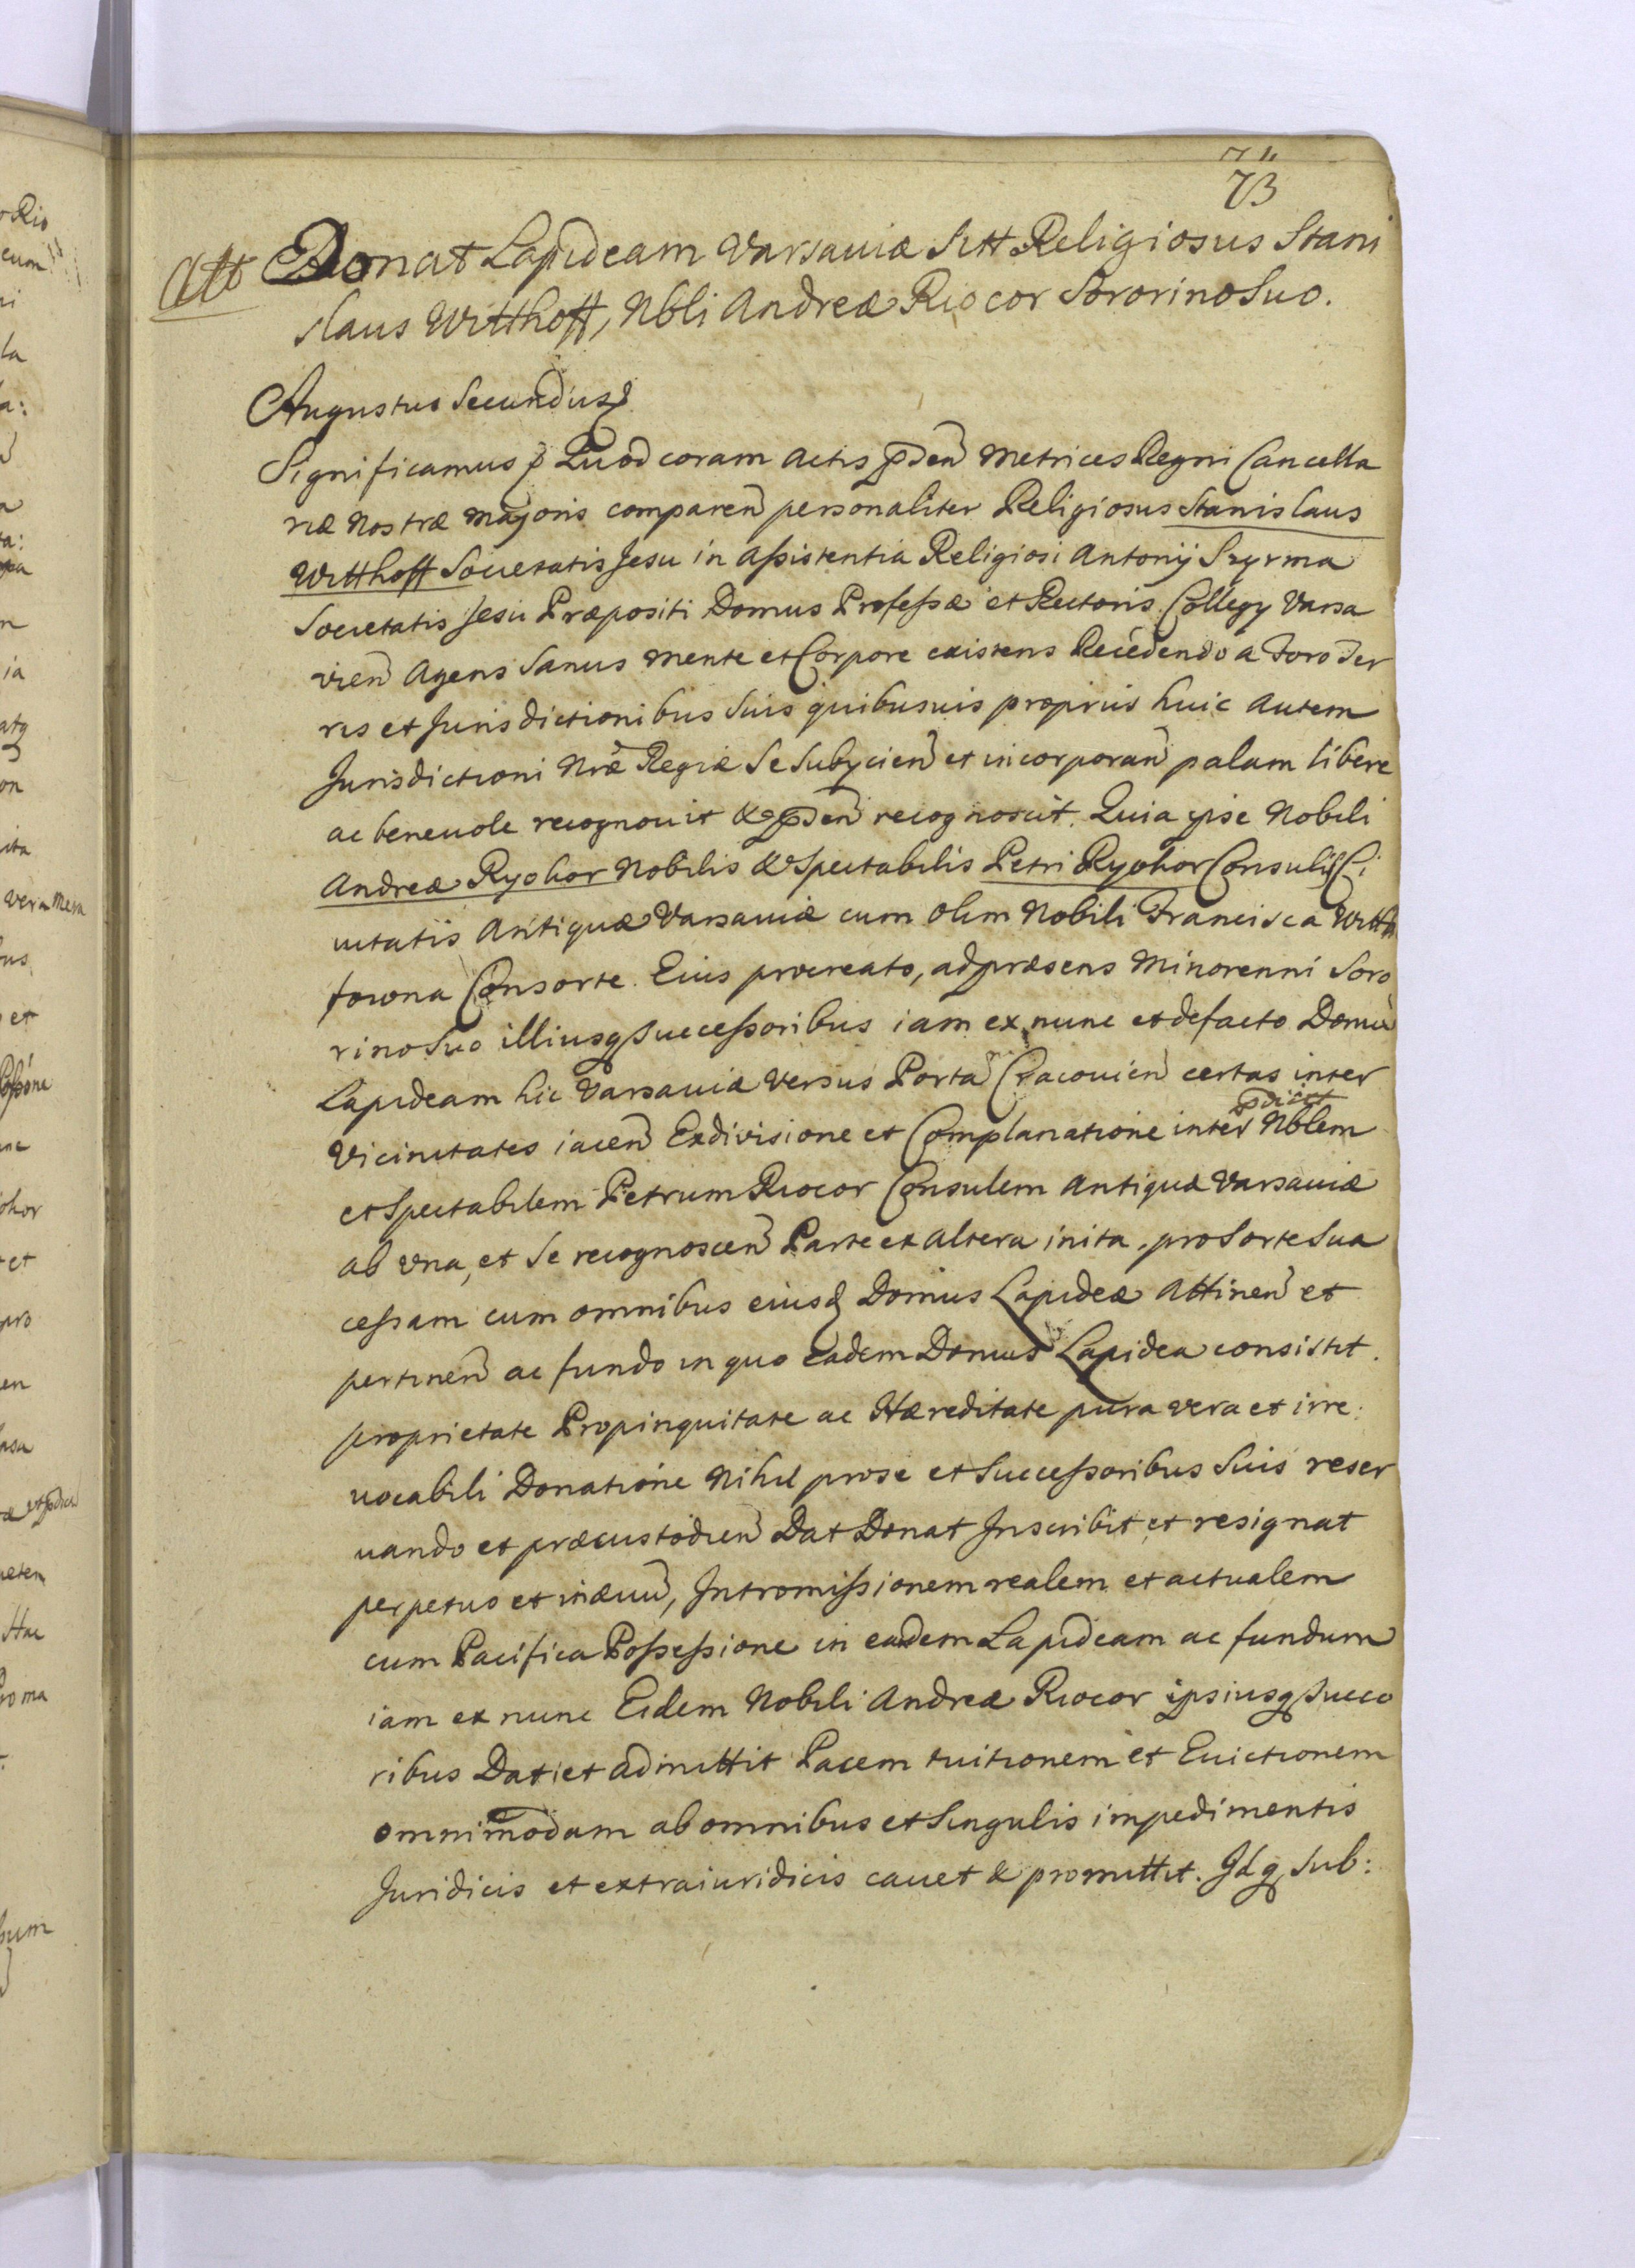 73
Att Donat Lapideam Varsaviæ Sitt Religiosus Stani
slaus Witthoff, Nbli Andreæ Riocor Sororino Suo.
Augustus Secundus
Significamus Quod coram Actis pñden Metrices Regni Cancella
riæ Nostræ Majoris comparen personaliter Religiosus Stanislaus
Witthoff Societatis Jesu in assistentia Religiosi Antonij Szyrma
Societatis Jesu Præpositi Domus Professæ et Rectoris Collegij Varsa
vien Agens Sanus Mente et Corpore existens Recedendo a Foro Ter
ris et Jurisdictionibus Suis quibusuis proprijs huic Autem
Jurisdictioni Nræ Regiæ Se Subijcien et incorporan palam libere
ac beneuole recognouit & pden recognoscit. Quia ipse Nobili
Andreæ Ryohor Nobilis & Spectabilis Petri Ryohor Consulis Ci
uitatis Antiquæ Varsauiæ cum olim Nobili Francisca Witth
fowna Consorte Eius procreato, ad præsens Minorenni Soro
rino Suo illiusq Successoribus iam ex nunc et defacto Domũ
Lapideam hic Varsauiæ Versus Portã Cracouien certas inter
pdict
Vicinitates iacen Exdivisione et Complanatione inter Nblem
et Spectabilem Petrum Riocor Consulem Antiquæ Varsauiæ
ab Vna, et Se recognoscen Parte ex Altera inita, pro Sorte Sua
cessam cum omnibus eiusd Domus Lapideæ Attinen et
pertinen ac fundo in quo eadem Domus Lapidea consistit.
proprietate Propinquitate ac Hæreditate pura vera et irre:
uocabili Donatione Nihil prose et Successoribus Suis reser
uando et præcustodien Dat Donat Inscribit et resignat
perpetuo et in æuũ, Intromissionem realem et actualem
cum Pacifica Possessione in eadem Lapideam ac fundum
iam ex nunc Eidem Nobili Andreæ Riocor ipsiusq Succo
ribus Dat et admittit Pacem tuitionem et Euictionem
omnimodam ab omnibus et Singulis impedimentis
Juridicis et extraiuridicis cauet & promittit. Idq Sub: